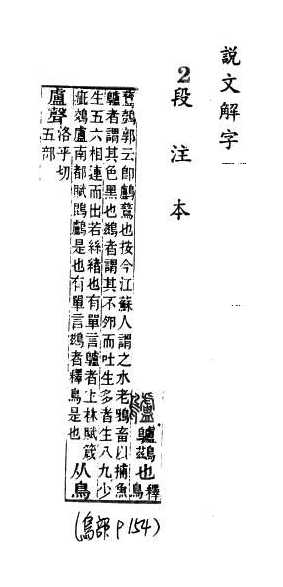 說文解字
2段注本
鸕鷀也釋鳥
鶿鷧郭云即鸕鶿也按今江蘇人謂之水老鴉畜以捕魚
鸕者謂其色黑也鷀者謂其不卵而吐生多者生八九少
生五六相連而出若絲緒也有單言鸕者上林賦箴
疵鵁盧南都賦鷗鸕是也有單言鷀者釋鳥是也 从鳥
盧聲 洛乎切 五部
(鳥部 P154)